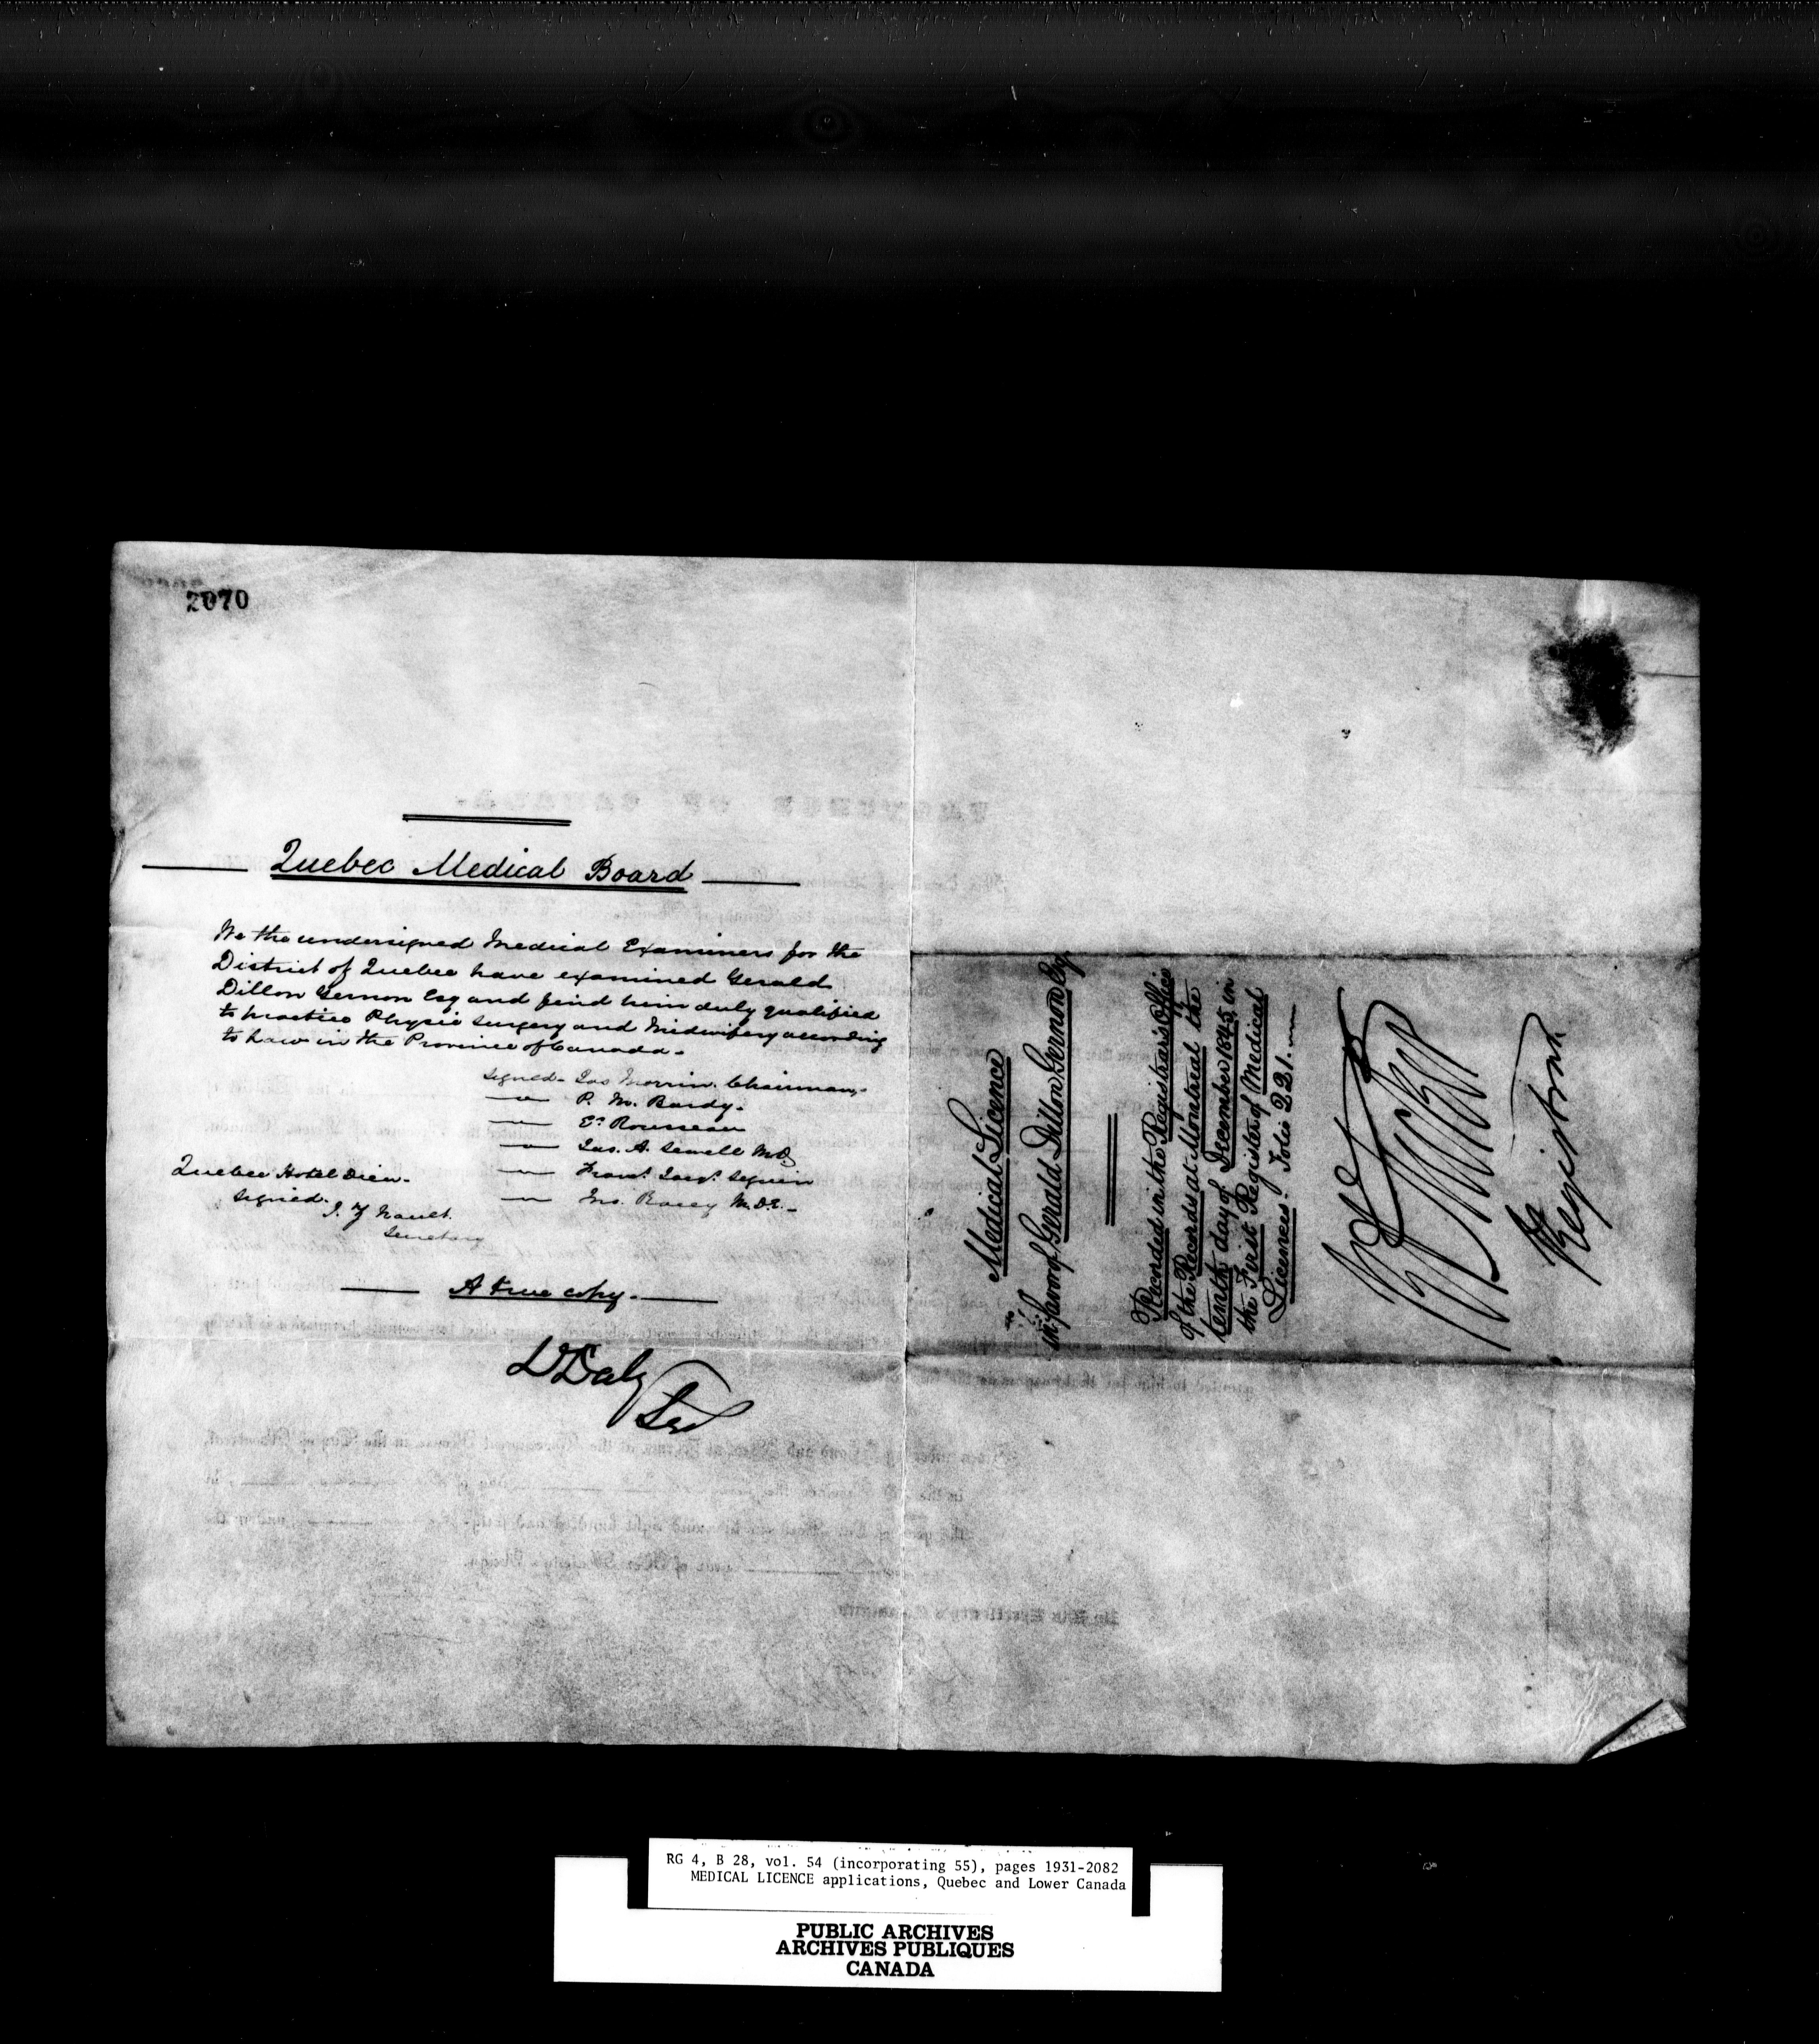 2070
Quebec Medical Board
We the undersigned Medical Examiners for the
District of Quebec have examined Gerald
Dillon Gernon Esq and find him duly qualified
to practice Physic Surgery and Midwifery according
to Law in the Province of Canada.
signed. Jas Morrin. Chairman.
P. M. Bardy.
E. Rousseau
Jas. A. Sewell M.D.
Seguin
Jno. Racey M.D.E.
Quebec Hotel Dieu.
signed. J. Z Nault.
Secretary
A true copy.
D Daly
Sec
Medical Licence
in favor of Gerald Dillon Gernon Esq.
Recorded in the Registrar's Office
of the Records at Montreal the
tenth day of December 1845, in
the First Register of Medical
Licences. Folio 221.
Registrar
RG 4, B 28, vol. 54 (incorporating 55), pages 1931-2082
MEDICAL LICENCE applications, Quebec and Lower Canada
PUBLIC ARCHIVES
ARCHIVES PUBLIQUES
CANADA